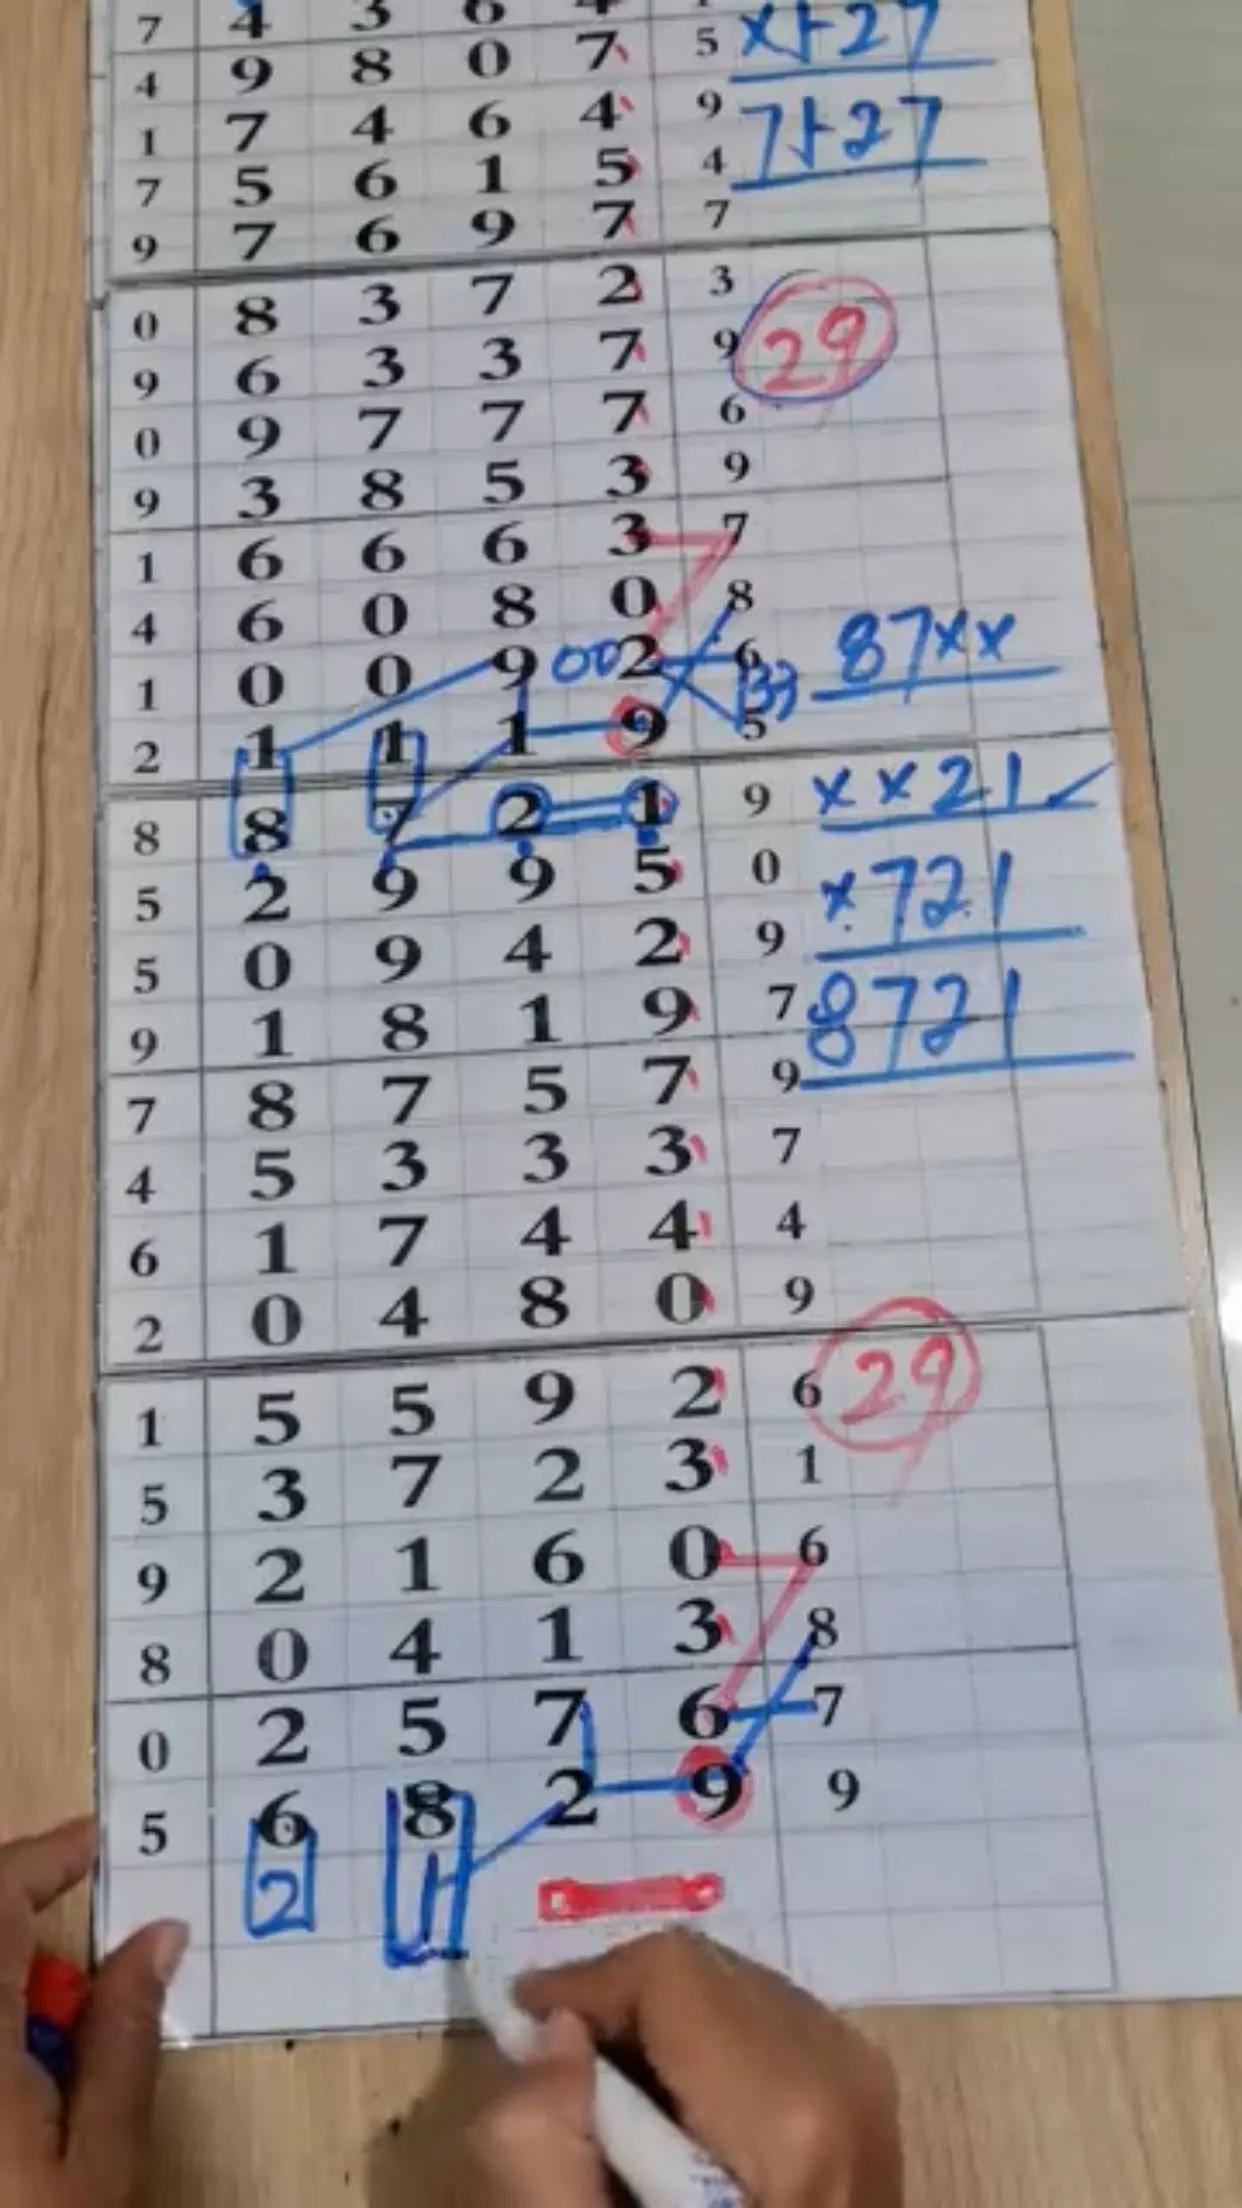 7 4 3 6
4 9 8 0 7 5 x+27
1 7 4 6 4 9 7+27
7 5 6 1 5 4
9 7 6 9 7 7
0 8 3 7 2 3
9 6 3 3 7 9 29
0 9 7 7 7 6
9 3 8 5 3 9
1 6 6 6 3 7
4 6 0 8 0 8
1 0 0 9 00 2 6 87xx
2 1 1 1 9 5
8 8 7 2 1 9 xx21
5 2 9 9 5 0 x721
5 0 9 4 2 9
9 1 8 1 9 7 8721
7 8 7 5 7 9
4 5 3 3 3 7
6 1 7 4 4 4
2 0 4 8 0 9
1 5 5 9 2 6 29
5 3 7 2 3 1
9 2 1 6 0 6
8 0 4 1 3 8
0 2 5 7 6 7
5 6 8 2 9 9
2 1